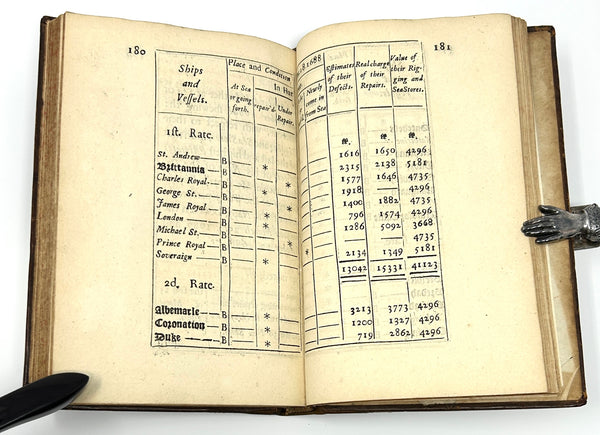 180
181
Ships and Vessels.
Place and Condition
R 1688
At Sea or going forth.
In Har
epair'd.
Under Repair.
Newly come in from Sea
Estimates of their Defects.
Real charge of their Repairs.
Value of their Rigging and Sea Stores.
1st. Rate.
St. Andrew — B 1616 1650 4296
Brittannia — B * 2315 2138 5181
Charles Royal — B * 1577 1646 4735
George St. — B * 1918 — 4296
James Royal — B * 1400 1882 4735
London — B * 796 1574 4296
Michael St. — B 1286 5092 3668
Prince Royal — B * — — 4735
Soveraign — B * 2134 1349 5181
13042 15331 41123
2d. Rate.
Albemarle — B * 3213 3773 4296
Coronation — B * 1200 1327 4296
Duke — B * 719 2862 4296